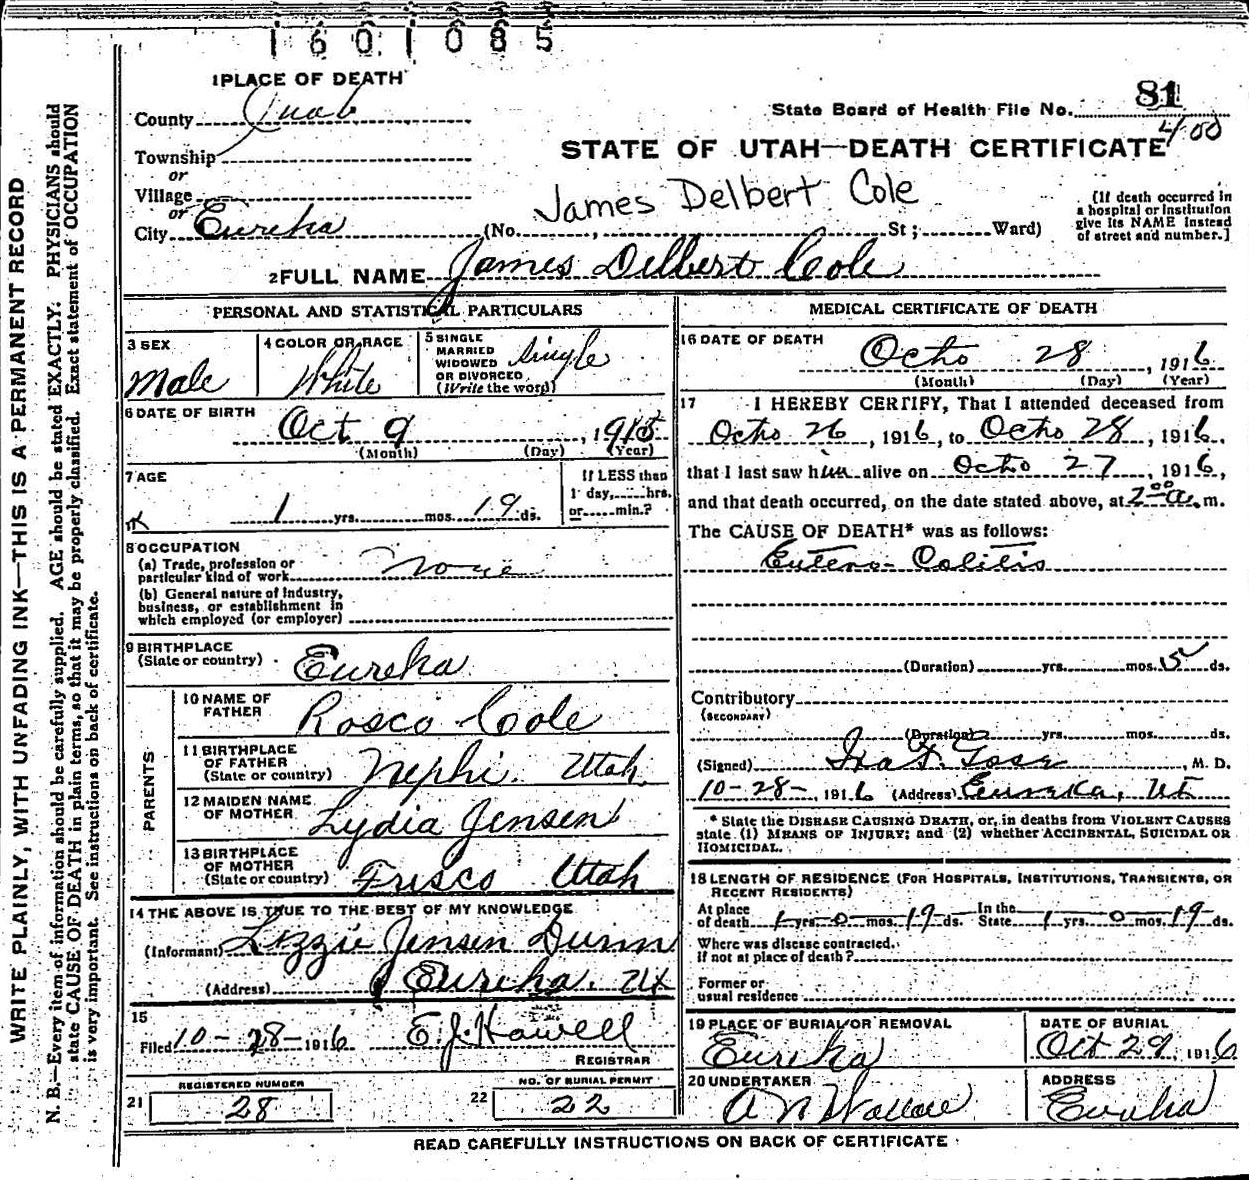 1601085
1 PLACE OF DEATH
County Juab
State Board of Health File No. 81
400
Township
or
STATE OF UTAH—DEATH CERTIFICATE
Village
or
James Delbert Cole
City Eureka (No. , St; Ward)
(If death occurred in
a hospital or institution
give its NAME instead
of street and number.]
2 FULL NAME James Delbert Cole
PERSONAL AND STATISTICAL PARTICULARS
3 SEX
Male
4 COLOR OR RACE
White
5 SINGLE
MARRIED
WIDOWED
OR DIVORCED
(Write the word)
Single
6 DATE OF BIRTH
Oct 9, 1915
(Month) (Day) (Year)
7 AGE
1 yrs. mos. 19 ds.
If LESS than
1 day, hrs.
or min.?
8 OCCUPATION
(a) Trade, profession or
particular kind of work None
(b) General nature of Industry,
business, or establishment in
which employed (or employer)
9 BIRTHPLACE
(State or country) Eureka
PARENTS
10 NAME OF
FATHER Rosco Cole
11 BIRTHPLACE
OF FATHER
(State or country) Nephi. Utah
12 MAIDEN NAME
OF MOTHER Lydia Jensen
13 BIRTHPLACE
OF MOTHER
(State or country) Frisco Utah
14 THE ABOVE IS TRUE TO THE BEST OF MY KNOWLEDGE
(Informant) Lizzie Jensen Dunn
(Address) Eureka. Ut
15
Filed 10-28-1916 E.J. Howell
REGISTRAR
21 REGISTERED NUMBER
28
22 NO. OF BURIAL PERMIT
22
MEDICAL CERTIFICATE OF DEATH
16 DATE OF DEATH
Octo 28, 1916
(Month) (Day) (Year)
17 I HEREBY CERTIFY, That I attended deceased from
Octo 26, 1916, to Octo 28, 1916,
that I last saw him alive on Octo 27, 1916,
and that death occurred, on the date stated above, at 2 00 a. m.
The CAUSE OF DEATH* was as follows:
Entero-Colitis
(Duration) yrs. mos. 5 ds.
Contributory
(SECONDARY)
(Duration) yrs. mos. ds.
(Signed) , M. D.
10-28-, 1916 (Address) Eureka, Ut
* State the DISEASE CAUSING DEATH, or, in deaths from VIOLENT CAUSES
state (1) MEANS OF INJURY; and (2) whether ACCIDENTAL, SUICIDAL OR
HOMICIDAL.
18 LENGTH OF RESIDENCE (FOR HOSPITALS, INSTITUTIONS, TRANSIENTS, OR
RECENT RESIDENTS)
At place
of death 1 yrs. 0 mos. 19 ds. In the
State 1 yrs. 0 mos. 19 ds.
Where was disease contracted.
if not at place of death?
Former or
usual residence
19 PLACE OF BURIAL OR REMOVAL
Eureka
DATE OF BURIAL
Oct 29, 1916
20 UNDERTAKER
A N Wallace
ADDRESS
Eureka
READ CAREFULLY INSTRUCTIONS ON BACK OF CERTIFICATE
WRITE PLAINLY, WITH UNFADING INK—THIS IS A PERMANENT RECORD
N. B.—Every item of information should be carefully supplied. AGE should be stated EXACTLY. PHYSICIANS should
state CAUSE OF DEATH in plain terms, so that it may be properly classified. Exact statement of OCCUPATION
is very important. See instructions on back of certificate.